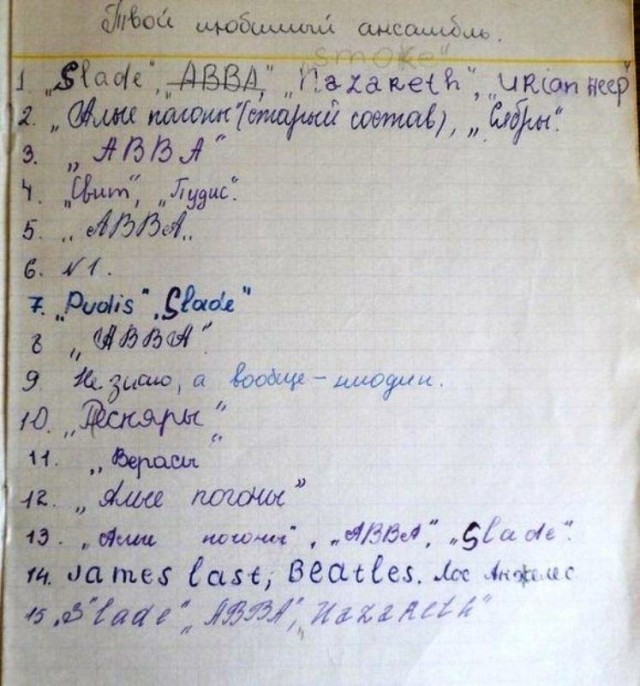 Твой любимый ансамбль.
"Smoke"
1 „Slade", „ABBA", „Nazareth", „URian HEEP"
2. „Алые погоны" (старый состав), „Сябры".
3. „ABBA"
4. „Свит", „Пудис".
5. „ABBA„
6. N1.
7. „Pudis", Slade"
8 „ABBA".
9 Не знаю, а вообще – ниодин.
10. „Песняры"
11. „Верасы"
12. „Алые погоны"
13. „Алые погоны", „ABBA", „Slade".
14. James last, Beatles. Лос Анжелес
15. „Slade", „ABBA", „Nazareth"